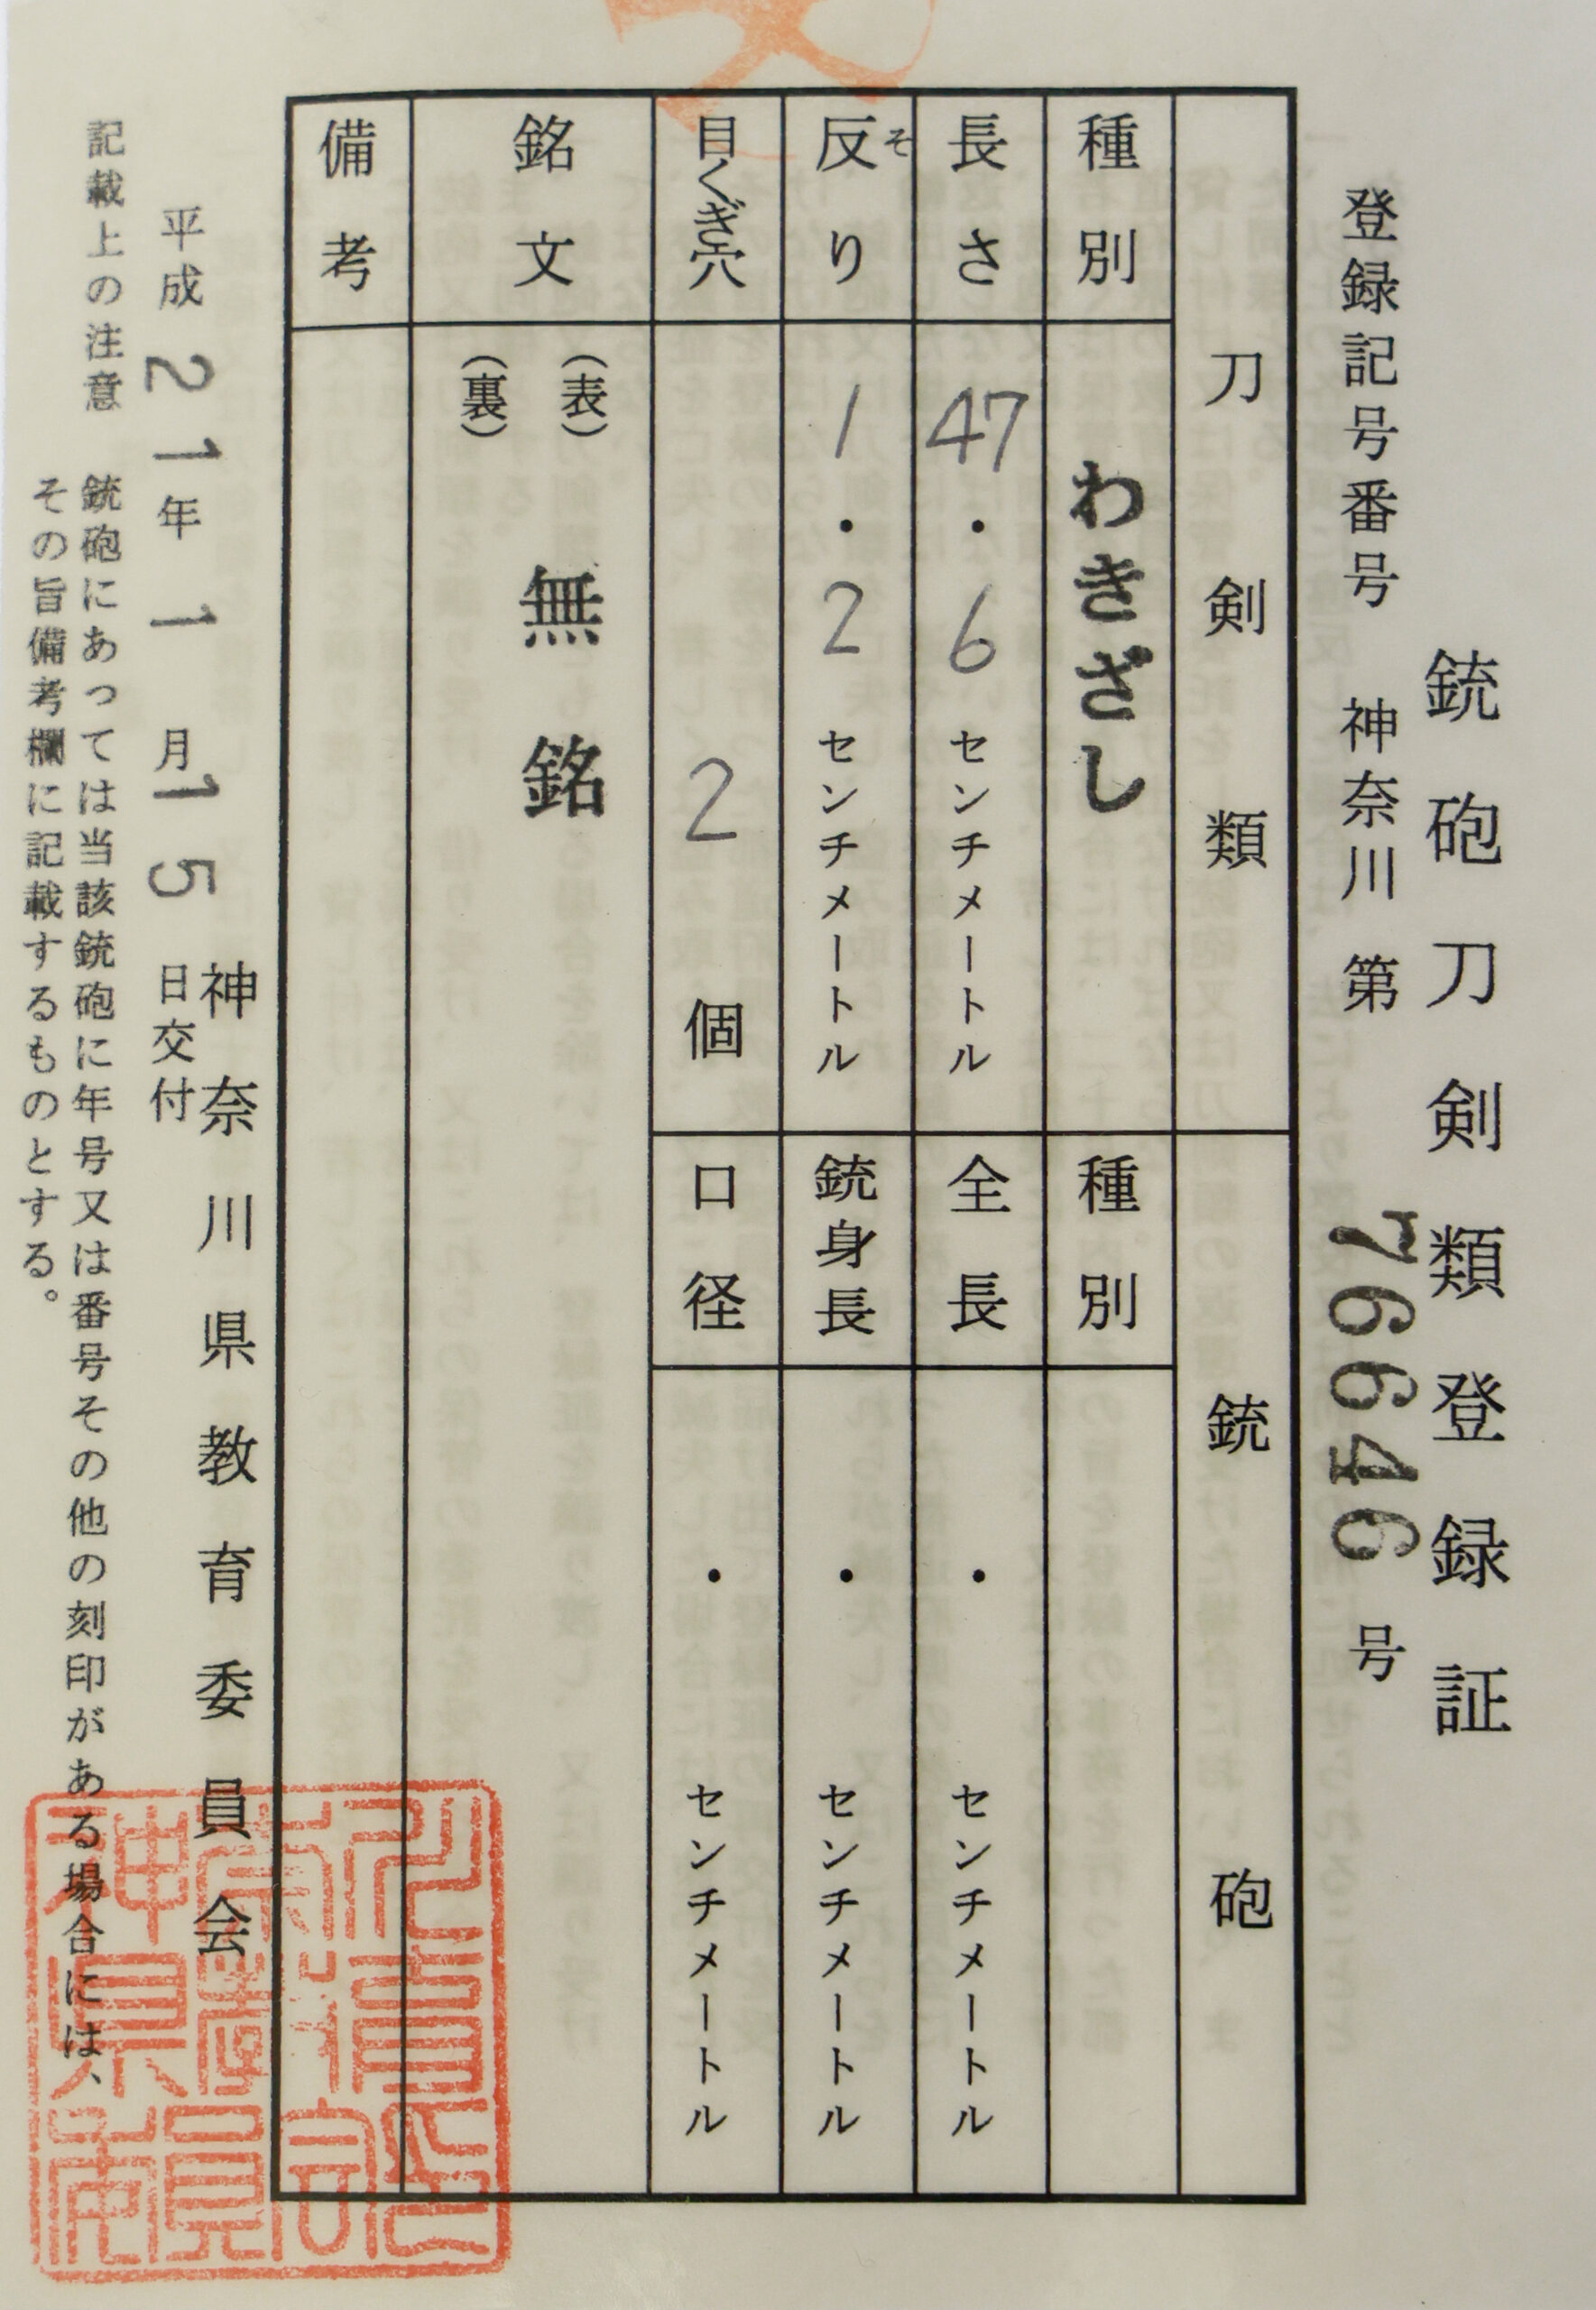 銃砲刀剣類登録証
登録記号番号 神奈川 第 76646 号
刀剣類
種別 わきざし
長さ 47.6 センチメートル
反り 1.2 センチメートル
そ
目くぎ穴 2 個
銃砲
種別
全長 ・ センチメートル
銃身長 ・ センチメートル
口径 ・ センチメートル
銘文 (表) 無銘
(裏)
備考
神奈川県教育委員会
平成 21年 1月 15日交付
記載上の注意 銃砲にあっては当該銃砲に年号又は番号その他の刻印がある場合には、
その旨備考欄に記載するものとする。